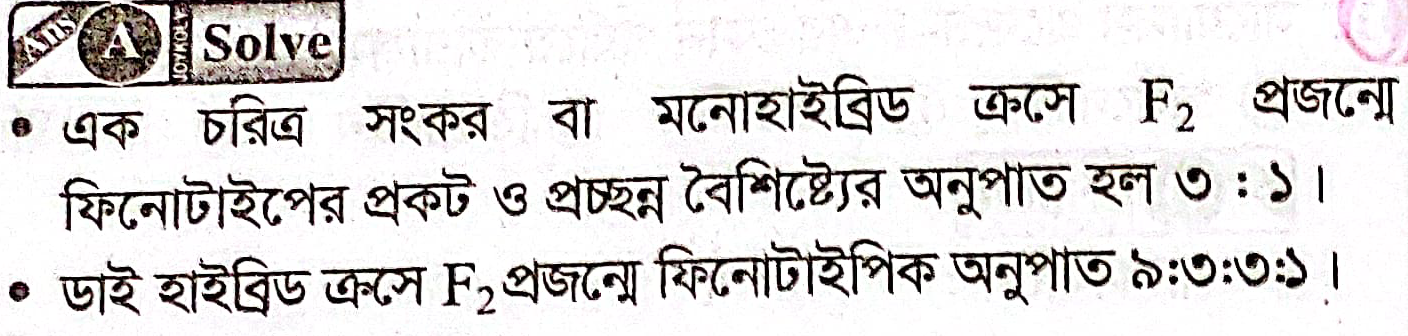 Ans A JOYKOLY Solve
• এক চরিত্র সংকর বা মনোহাইব্রিড ক্রসে F₂ প্রজন্মে
ফিনোটাইপের প্রকট ও প্রচ্ছন্ন বৈশিষ্ট্যের অনুপাত হল ৩ : ১।
• ডাই হাইব্রিড ক্রসে F₂ প্রজন্মে ফিনোটাইপিক অনুপাত ৯:৩:৩:১।